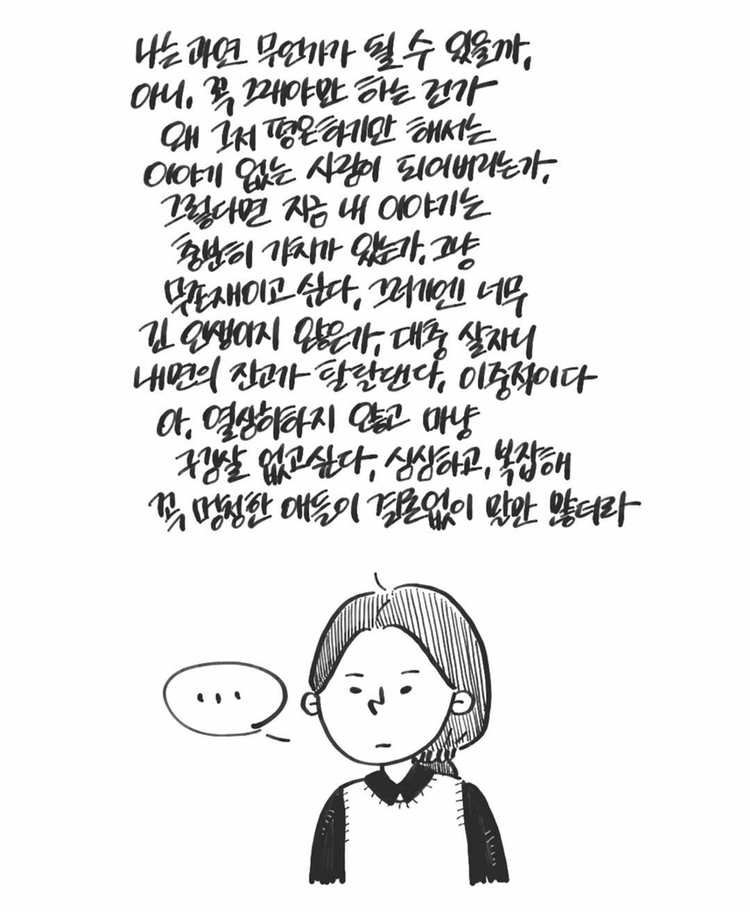 나는 과연 무언가가 될 수 있을까,
아니, 꼭 그래야만 하는 건가
왜 그저 평온하기만 해서는
이야기 없는 사람이 되어버리는가,
그렇다면 지금 내 이야기는
충분히 가치가 있는가, 그냥
무존재이고 싶다, 그러기엔 너무
긴 인생이지 않은가, 대충 살자니
내면의 잔고가 탈탈댄다, 이중적이다
아, 열상하하지 않고 마냥
구김살 없고싶다, 심심하고, 복잡해
꼭 멍청한 애들이 결론없이 말만 많더라
...